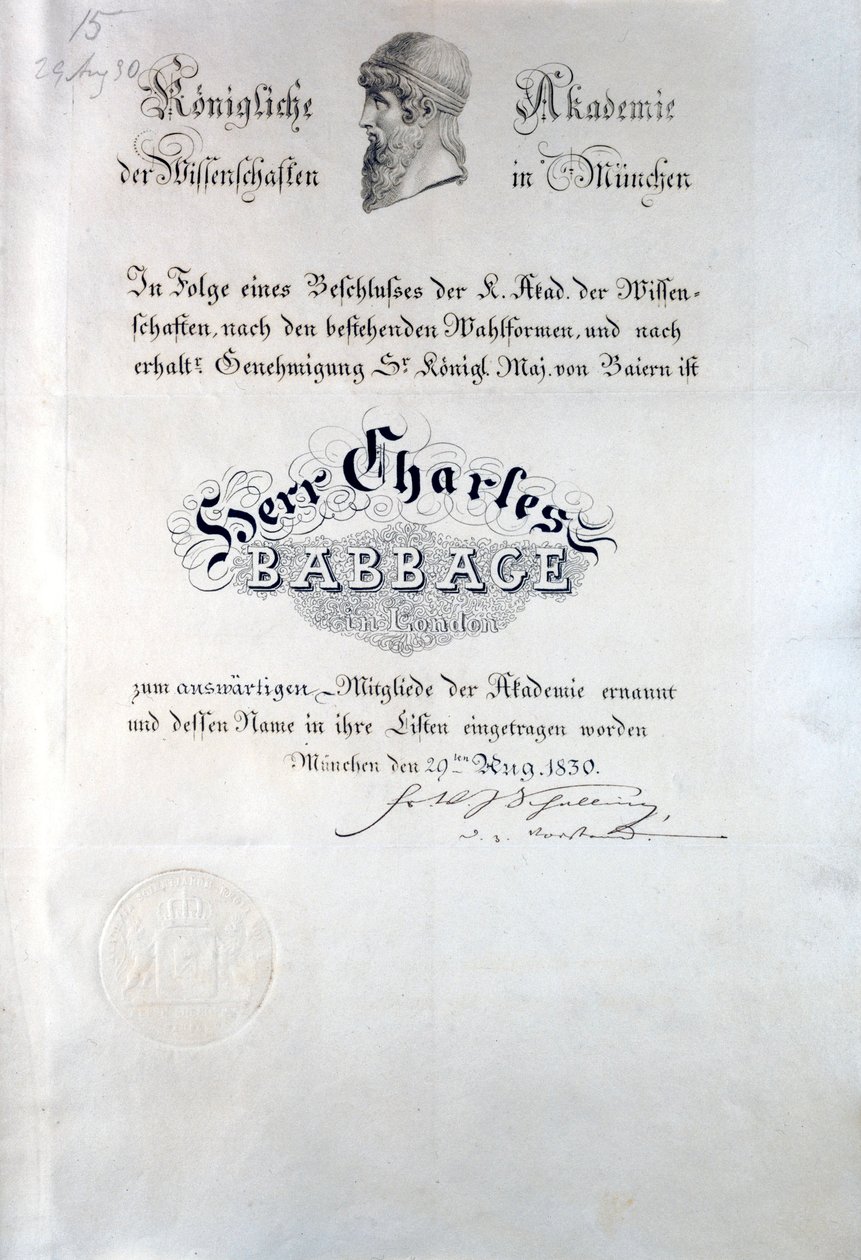 15
29 Aug 30
Königliche Akademie
der Wissenschaften in München
In Folge eines Beschlusses der K. Akad. der Wissen-
schaften, nach den bestehenden Wahlformen, und nach
erhaltr. Genehmigung Sr. Königl. Maj. von Baiern ist
Herr Charles
BABBAGE
in London
zum auswärtigen Mitgliede der Akademie ernannt
und dessen Name in ihre Listen eingetragen worden
München den 29ten Aug. 1830.
Vorstand.